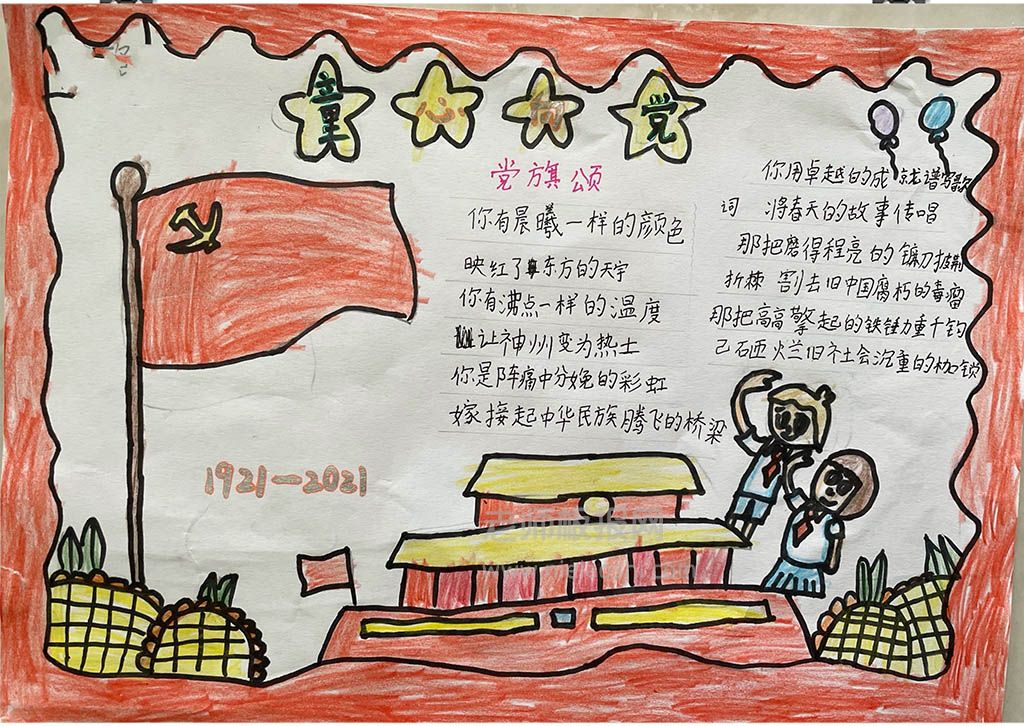 童心向党
党旗颂
你有晨曦一样的颜色
映红了东方的天宇
你有沸点一样的温度
让神州变为热土
你是阵痛中分娩的彩虹
嫁接起中华民族腾飞的桥梁
你用卓越的成就谱写歌
词 将春天的故事传唱
那把磨得程亮的镰刀披荆
折棘 割去旧中国腐朽的毒瘤
那把高高擎起的铁锤力重千钧
己石砸烂旧社会沉重的枷锁
1921—2021
老师板报网